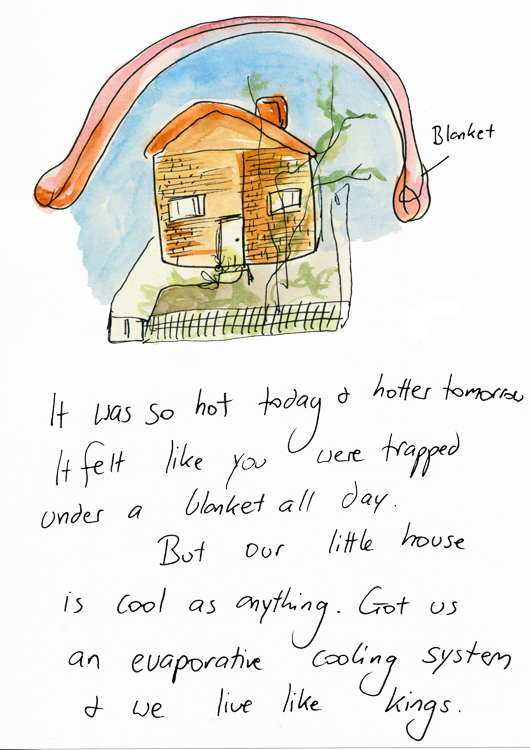 Blanket
It was so hot today & hotter tomorrow
It felt like you were trapped
under a blanket all day.
But our little house
is cool as anything. Got us
an evaporative cooling system
& we live like kings.